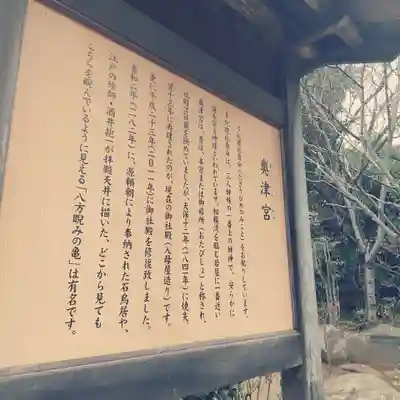 奥津宮
多紀理比賣命（たぎりひめのみこと）をお祀りしています。
多紀理比賣命は、三人姉妹の一番上の姉神で、安らかに
海を守る神様といわれています。相模湾を臨む岩屋に一番近い
奥津宮は、昔は、本宮または御旅所（おたびしょ）と称され、
壮麗は目を極めていましたが、天保十二年（一八四一年）に焼失、
翌十三年に再建されたのが、現在の御社殿（入母屋造り）です。
更に平成二十三年（二〇一一年）に御社殿を修復致しました。
養和二年（一一八二年）に、源頼朝により奉納された石鳥居や、
江戸の絵師・酒井抱一が拝殿天井に描いた、どこから見ても
こちらを睨んでいるように見える「八方睨みの亀」は有名です。